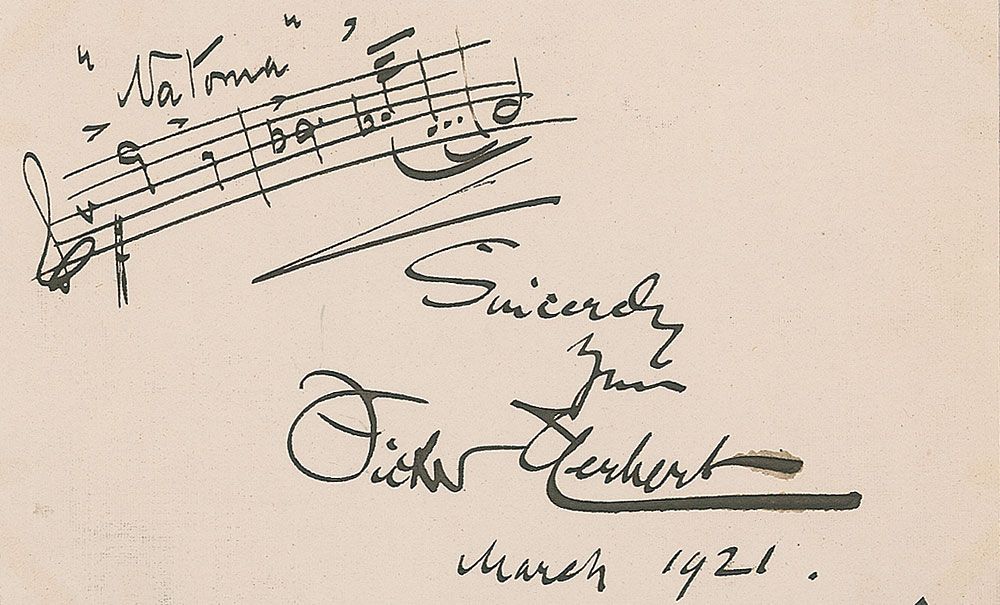 "Natoma"
Sincerely
Yours
Victor Herbert
March 1921.